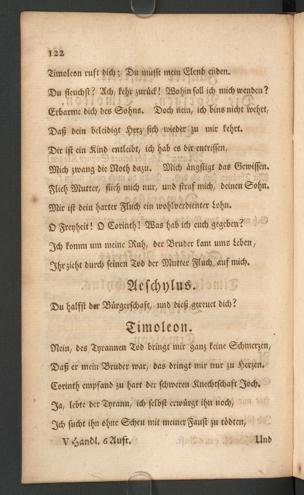 122
Timoleon ruft dich; Du mußt mein Elend enden.
Du fleuchst? Ach, kehr zurück! Wohin soll ich mich wenden?
Erbarme dich des Sohns. Doch nein, ich bins nicht wehrt,
Daß dein beleidigt Herz sich wieder zu mir kehrt.
Dir ist ein Kind entleibt, ich hab es dir entrissen,
Mich zwang die Noth dazu. Mich ängstigt das Gewissen.
Flieh Mutter, flieh mich nur, und straf mich, deinen Sohn.
Mir ist dein harter Fluch ein wohlverdienter Lohn.
O Freyheit! O Corinth! Was hab ich euch gegeben?
Ich komm um meine Ruh, der Bruder kam ums Leben,
Ihr zieht durch seinen Tod der Mutter Fluch auf mich.
Aeschylus.
Du halfst der Bürgerschaft, und dieß gereuet dich?
Timoleon.
Nein, des Tyrannen Tod bringt mir ganz keine Schmerzen,
Daß er mein Bruder war, das dringt mir nur zu Herzen.
Corinth empfand zu hart der schweren Knechtschaft Joch.
Ja, lebte der Tyrann, ich selbst erwürgt ihn noch,
Ich sucht ihn ohne Scheu mit meiner Faust zu tödten,
V Handl. 6 Auft. Und